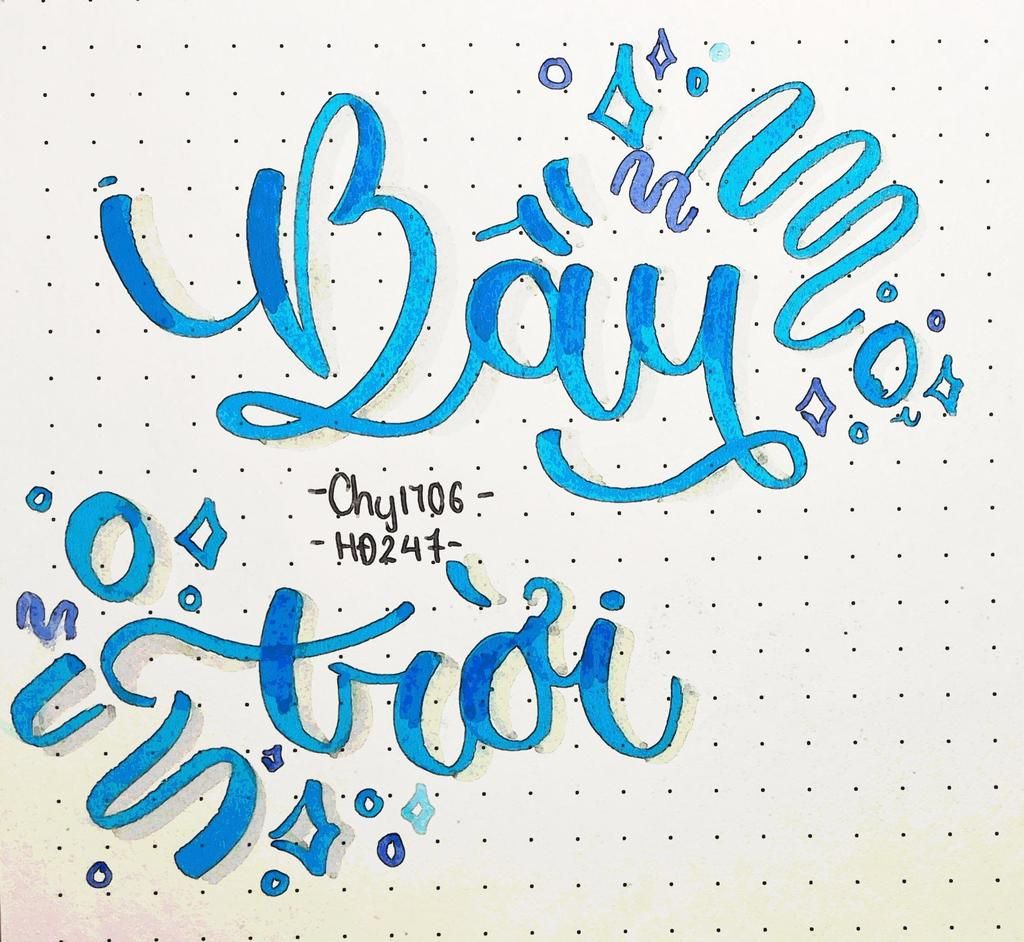 Bầy
-Chy1706 -
-HĐ247-
trời